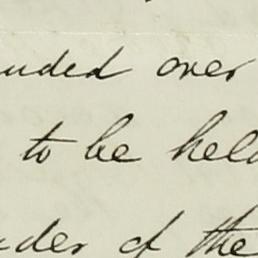 uded over
to be held
der of the